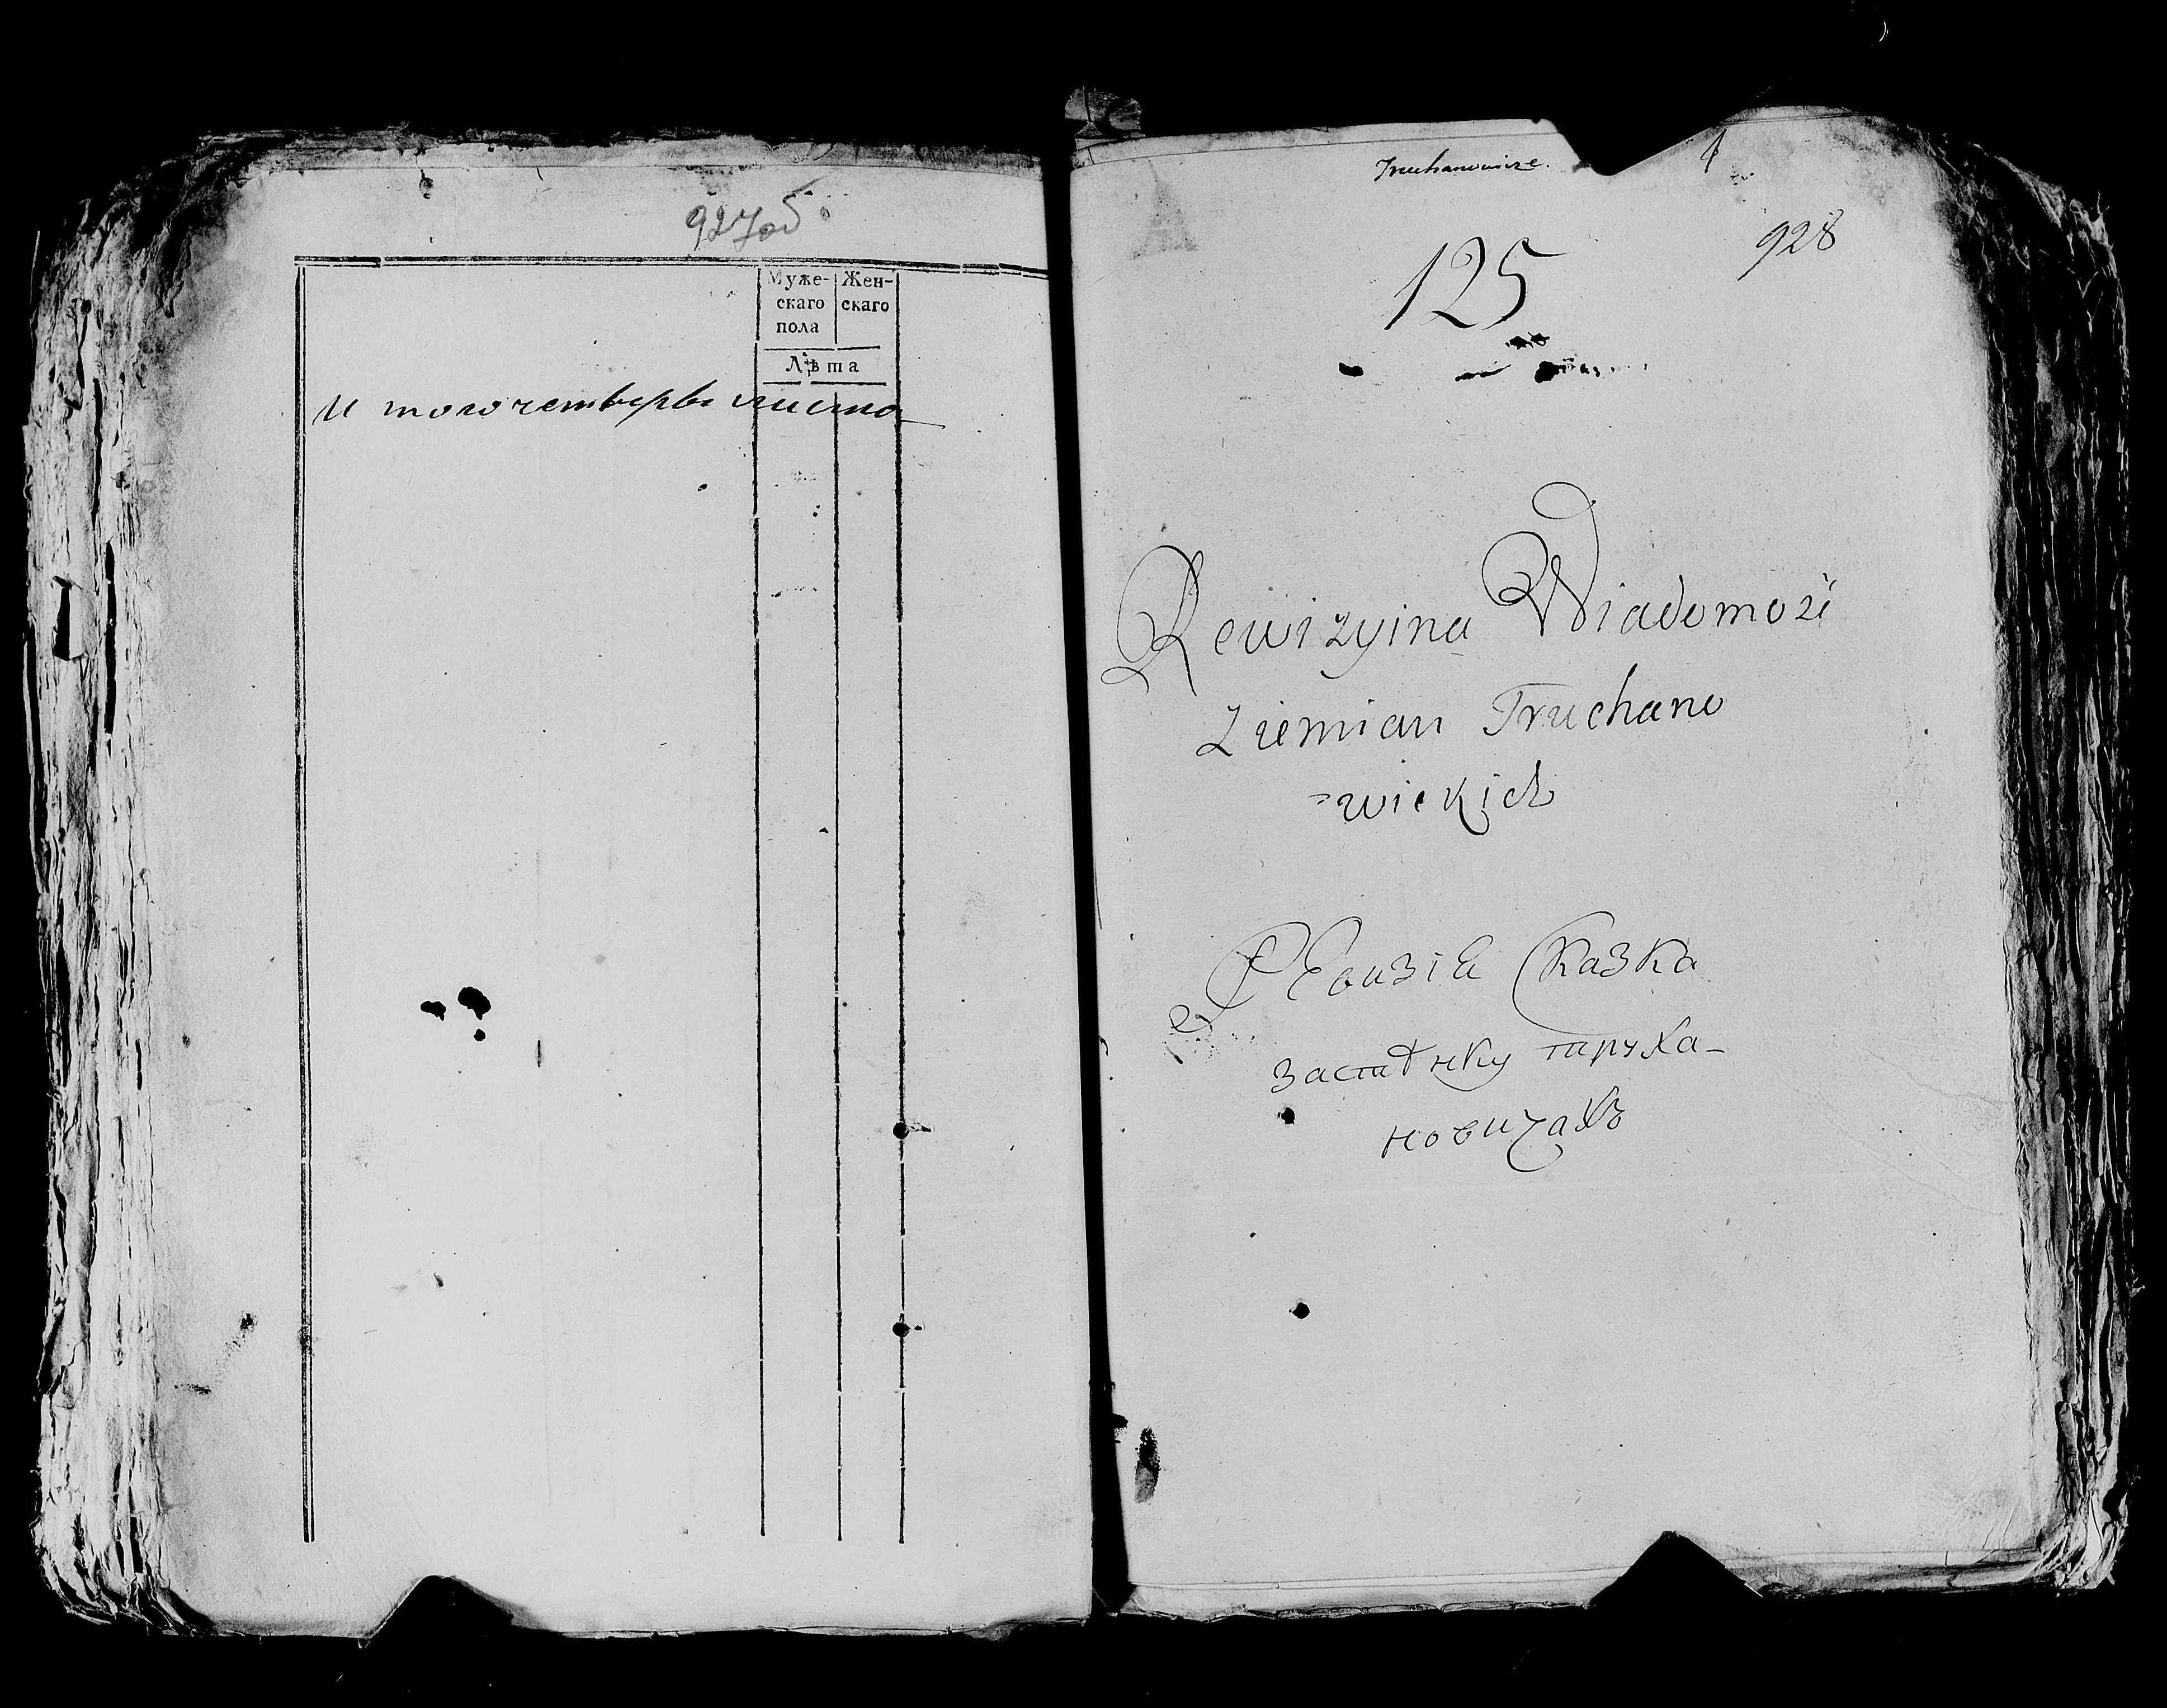 927об.
Муже- Жен-
скаго скаго
пола
Лѣта
И того четверы листа
Truchanowicze.
928
125
Rewizyina Wiadomość
Ziemian Truchano
=wickich
Ревизіа Сказка
застѣнку труха-
новичахъ